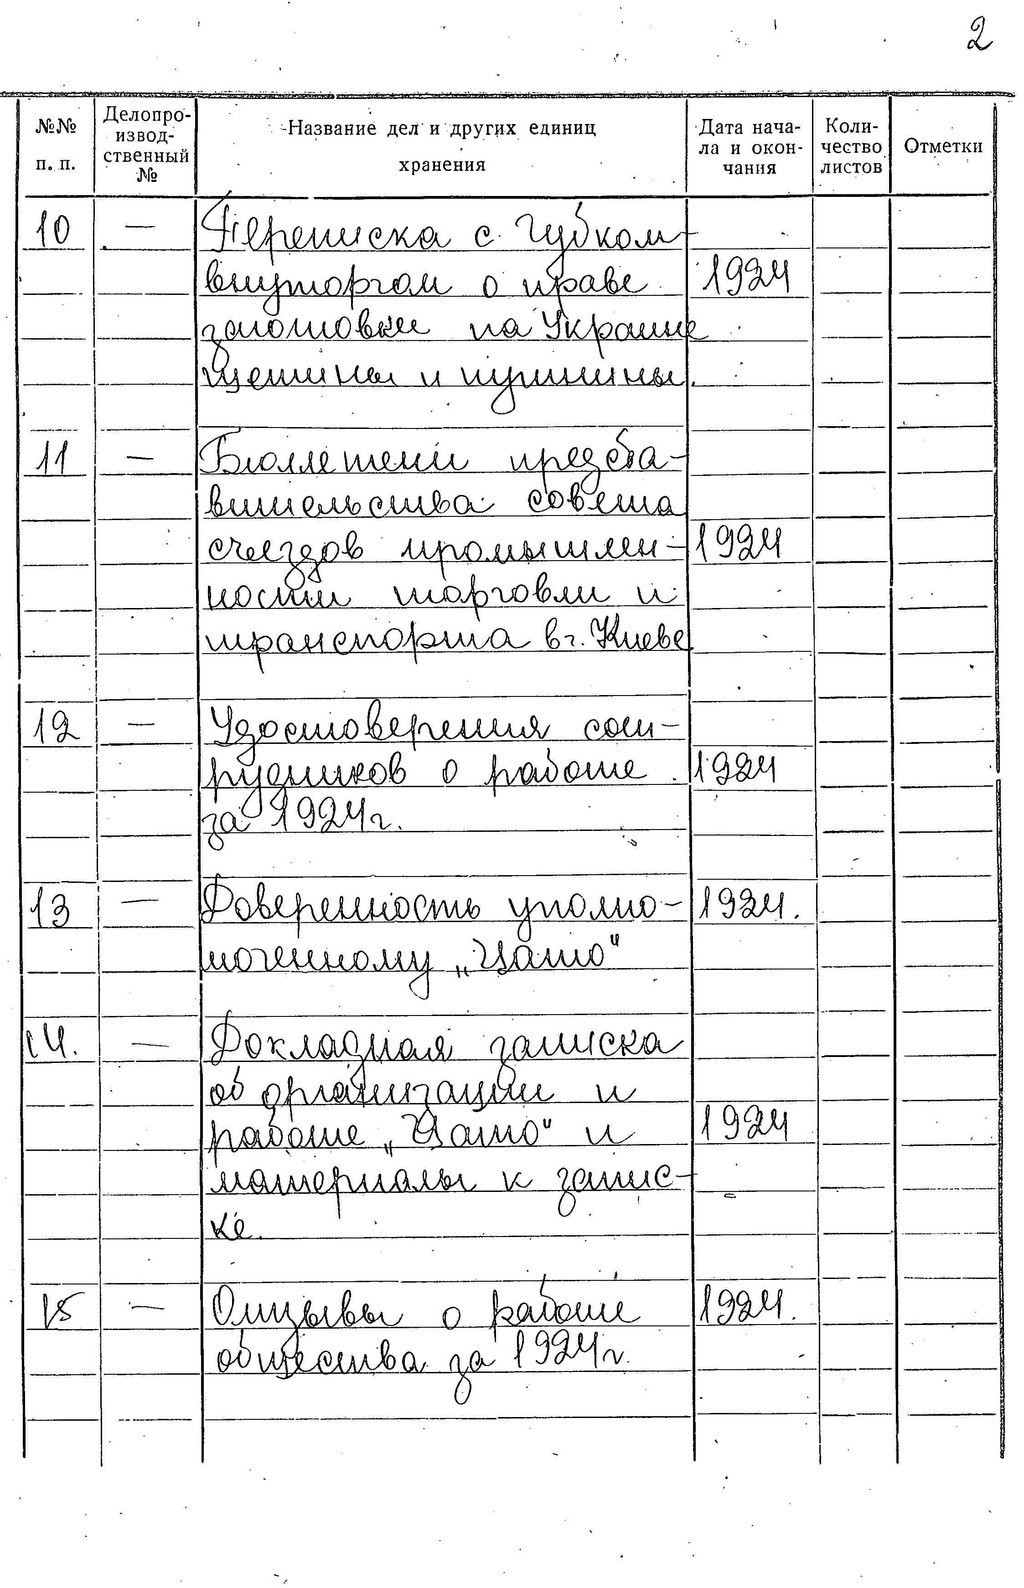 2
№№ п. п.
Делопро-
извод-
ственный
№
Название дел и других единиц
хранения
Дата нача-
ла и окон-
чания
Коли-
чество
листов
Отметки
10 — Переписка с Губком-
внуторгом о праве 1924
заготовки на Украине
щетины и пушнины.
11 — Бюллетени предста-
вительства совета
съездов промышлен- 1924
ности торговли и
транспорта в г. Киеве
12 — Удостоверения сот-
рудников о работе 1924
за 1924 г.
13 — Доверенность уполно- 1924.
моченному „Цато"
14. — Докладная записка
об организации и
работе „Цато" и 1924
материалы к запис-
ке.
15 — Отзывы о работе 1924.
общества за 1924 г.